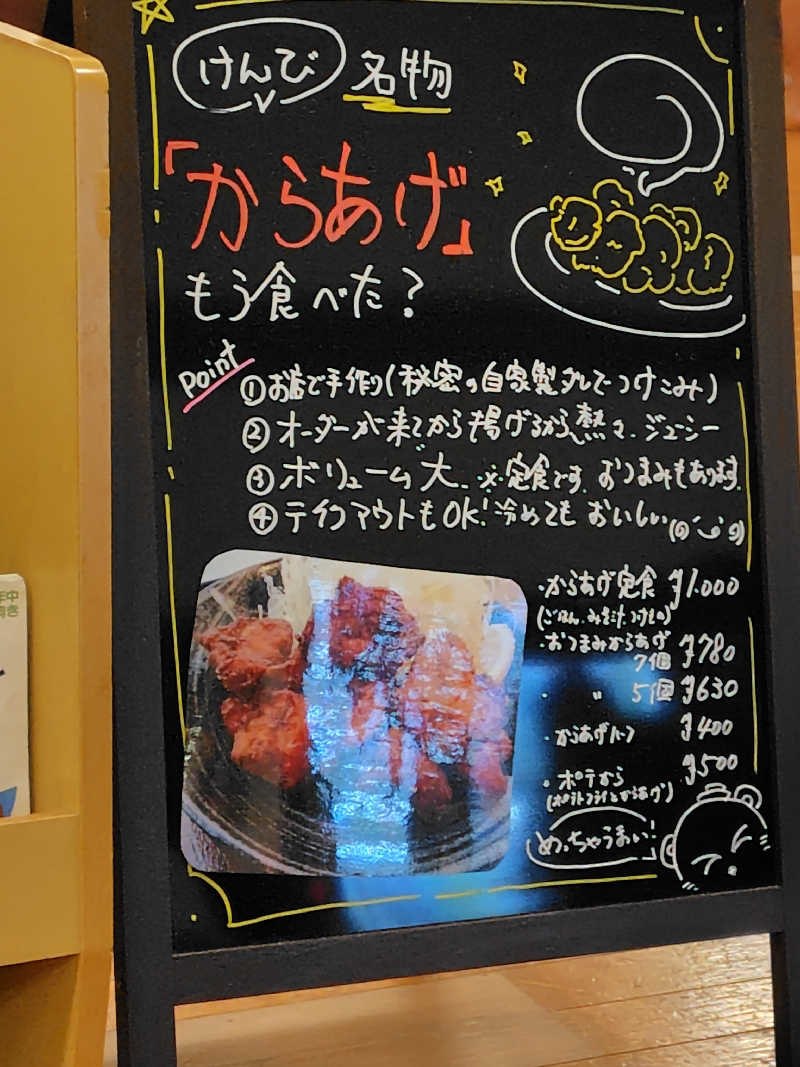 けんび 名物
「からあげ」
もう食べた?
Point
①お店で手作り(秘密の自家製タレでつけこみ)
②オーダーが来てから揚げるから熱々、ジューシー
③ボリューム大 ※定食です。おつまみもあります
④テイクアウトもOK!冷めてもおいしい
・からあげ定食 ¥1,000
(ごはん、みそ汁、つけもの)
・おつまみからあげ
7個 ¥780
・ 〃 5個 ¥630
・からあげハーフ ¥400
・ポテから ¥500
(ポテトフライとからあげ)
めっちゃうまい!
年中